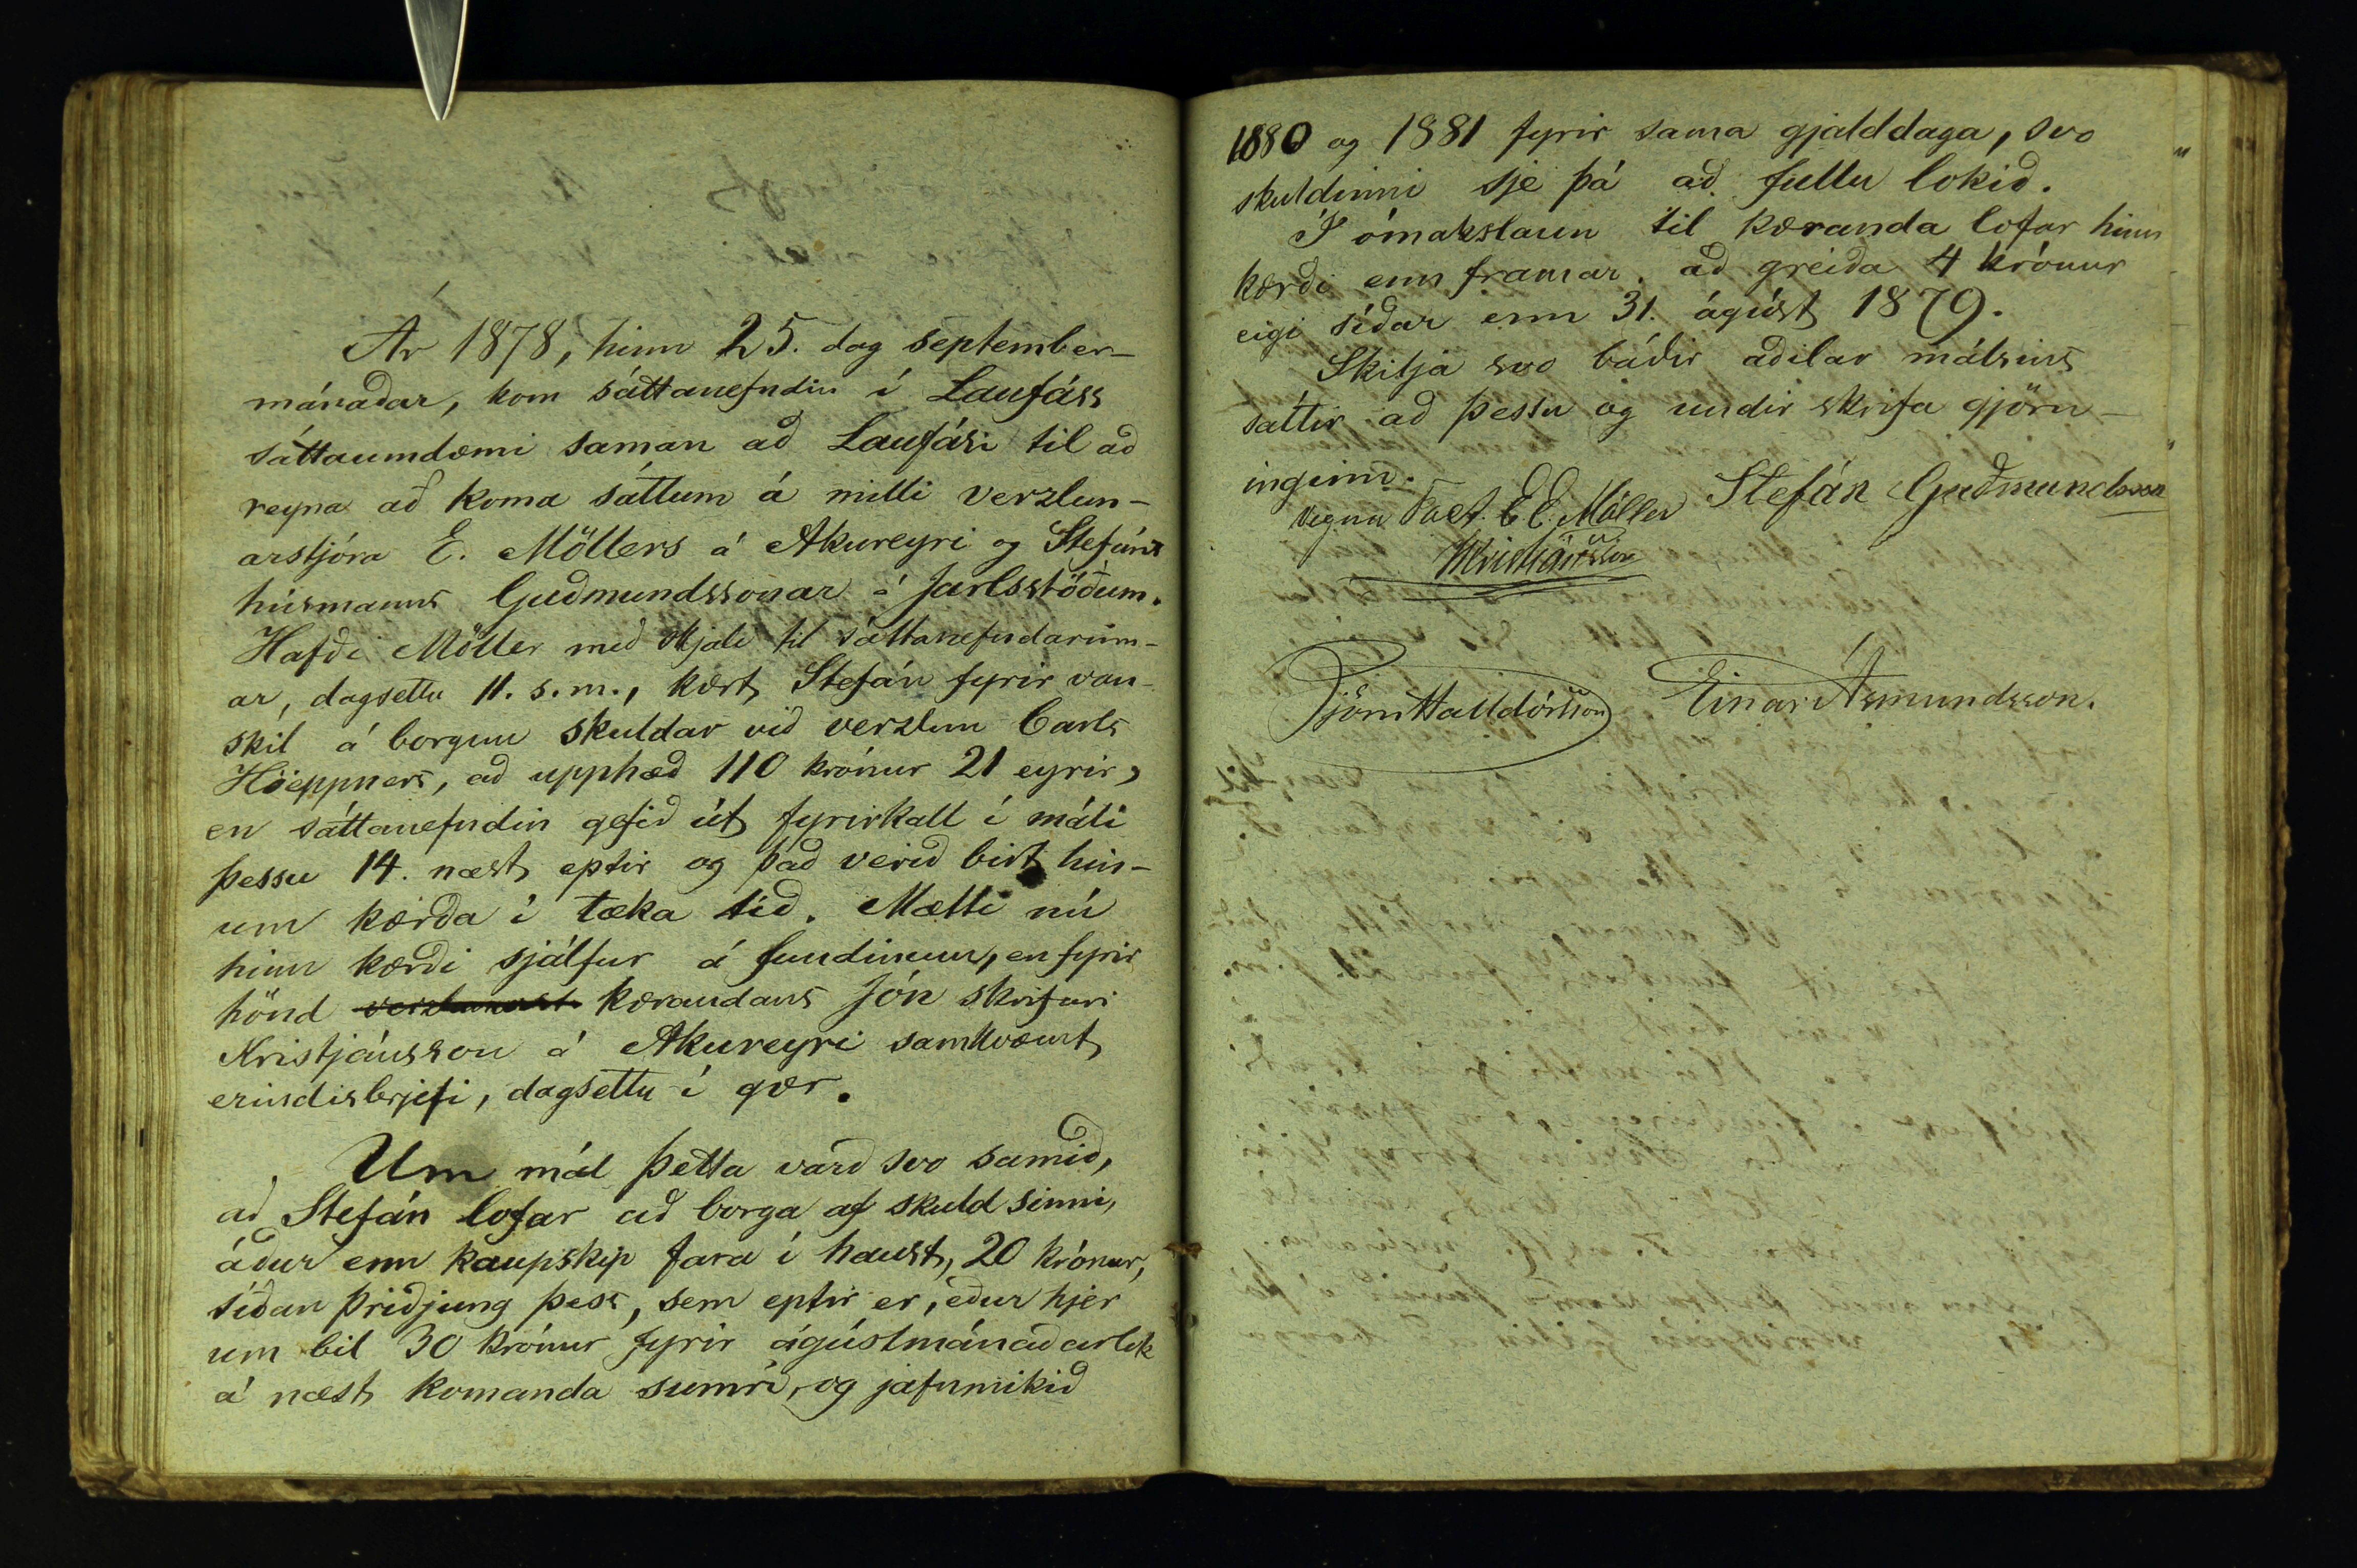 Ár 1878, hinn 25. dag september-
mánaðar, kom sáttanefndin í Laufáss
sáttaumdæmi saman að Laufási til að
reyna að koma sáttum á milli verzlun-
arstjóra E. Möllers á Akureyri og Stefáns
húsmanns Guðmundssonar á Jarlsstöðum.
Hafði Möller með skjali til sáttanefndarinn-
ar, dagsettu 11. s. m., kært Stefán fyrir van-
skil á borgun skuldar við verzlun Carls
Höeppners, að upphæð 110 krónur 21 eyrir,
en sáttanefndin gefið út fyrirkall í máli
þessu 14. næst eptir og það verið birt hin-
um kærða í tæka tíð. Mætti nú
hinn kærði sjálfur á fundinum, en fyrir
hönd verzlunarst kærandans Jón skrifari
Kristjánsson á Akureyri samkvæmt
erindisbrjefi, dagsettu í gær.
Um mál þetta varð svo samið,
að Stefán lofar að borga af skuld sinni,
áður enn kaupskip fara í haust, 20 krónur,
síðan þriðjung þess, sem eptir er, eður hjer
um bil 30 krónur fyrir ágústmánaðarlok
á næst komanda sumri, og jafnmikið
1880 og 1881 fyrir sama gjalddaga, svo
skuldinni sje þá að fullu lokið.
Í ómakslaun til kæranda lofar hinn
kærði enn framar að greiða 4 krónur
eigi síðar enn 31. ágúst 1879.
Skilja svo báðir aðilar málsins
sáttir að þessu og undir skrifa gjörn-
inginn.
Vegna Fact. E E. Möller Stefán Guðmundsson
JKristiánsson
Björn Halldórsson Einar Ásmundsson.